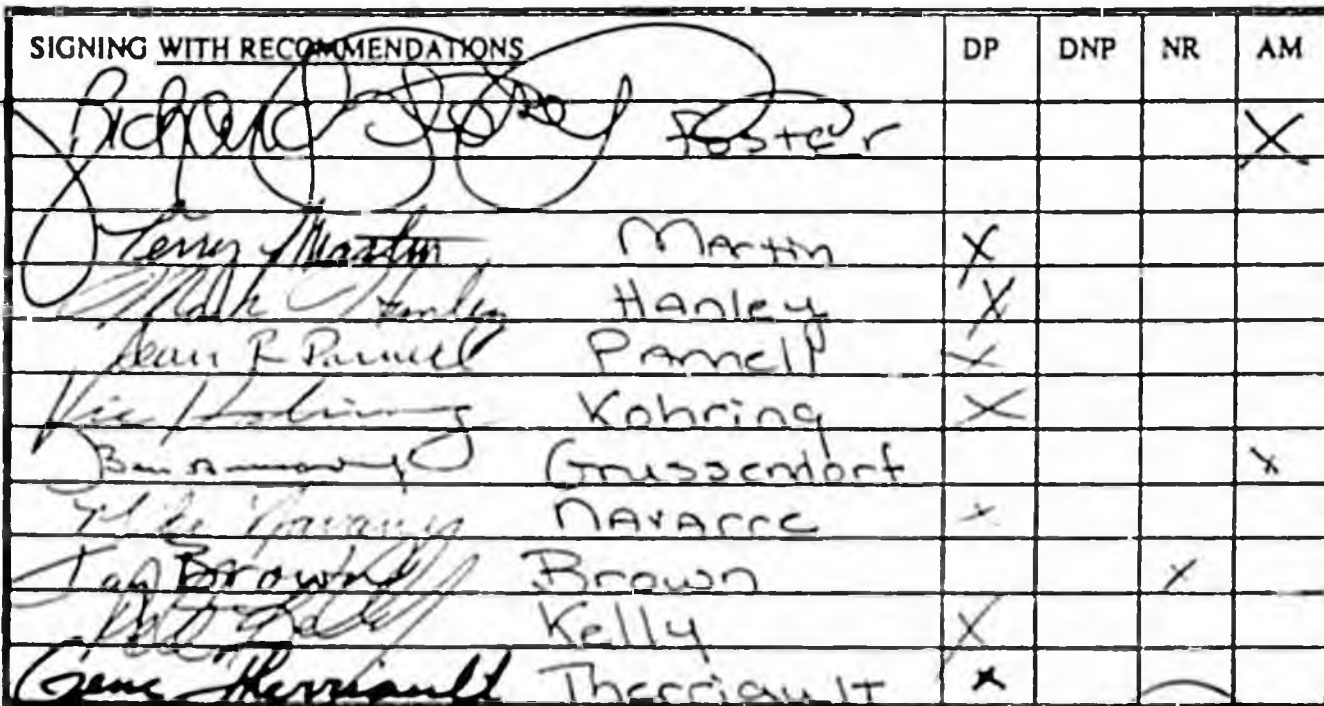 SIGNING WITH RECOMMENDATIONS DP DNP NR AM
Richard Foster Foster X
Terry Martin Martin X
Mark Hanley Hanley X
Sean R Parnell Parnell X
Vic Kohring Kohring X
Ben Grussendorf X
Mike Navarre Navarre X
Kay Brown Brown X
Pete Kelly Kelly X
Gene Therriault Therriault X